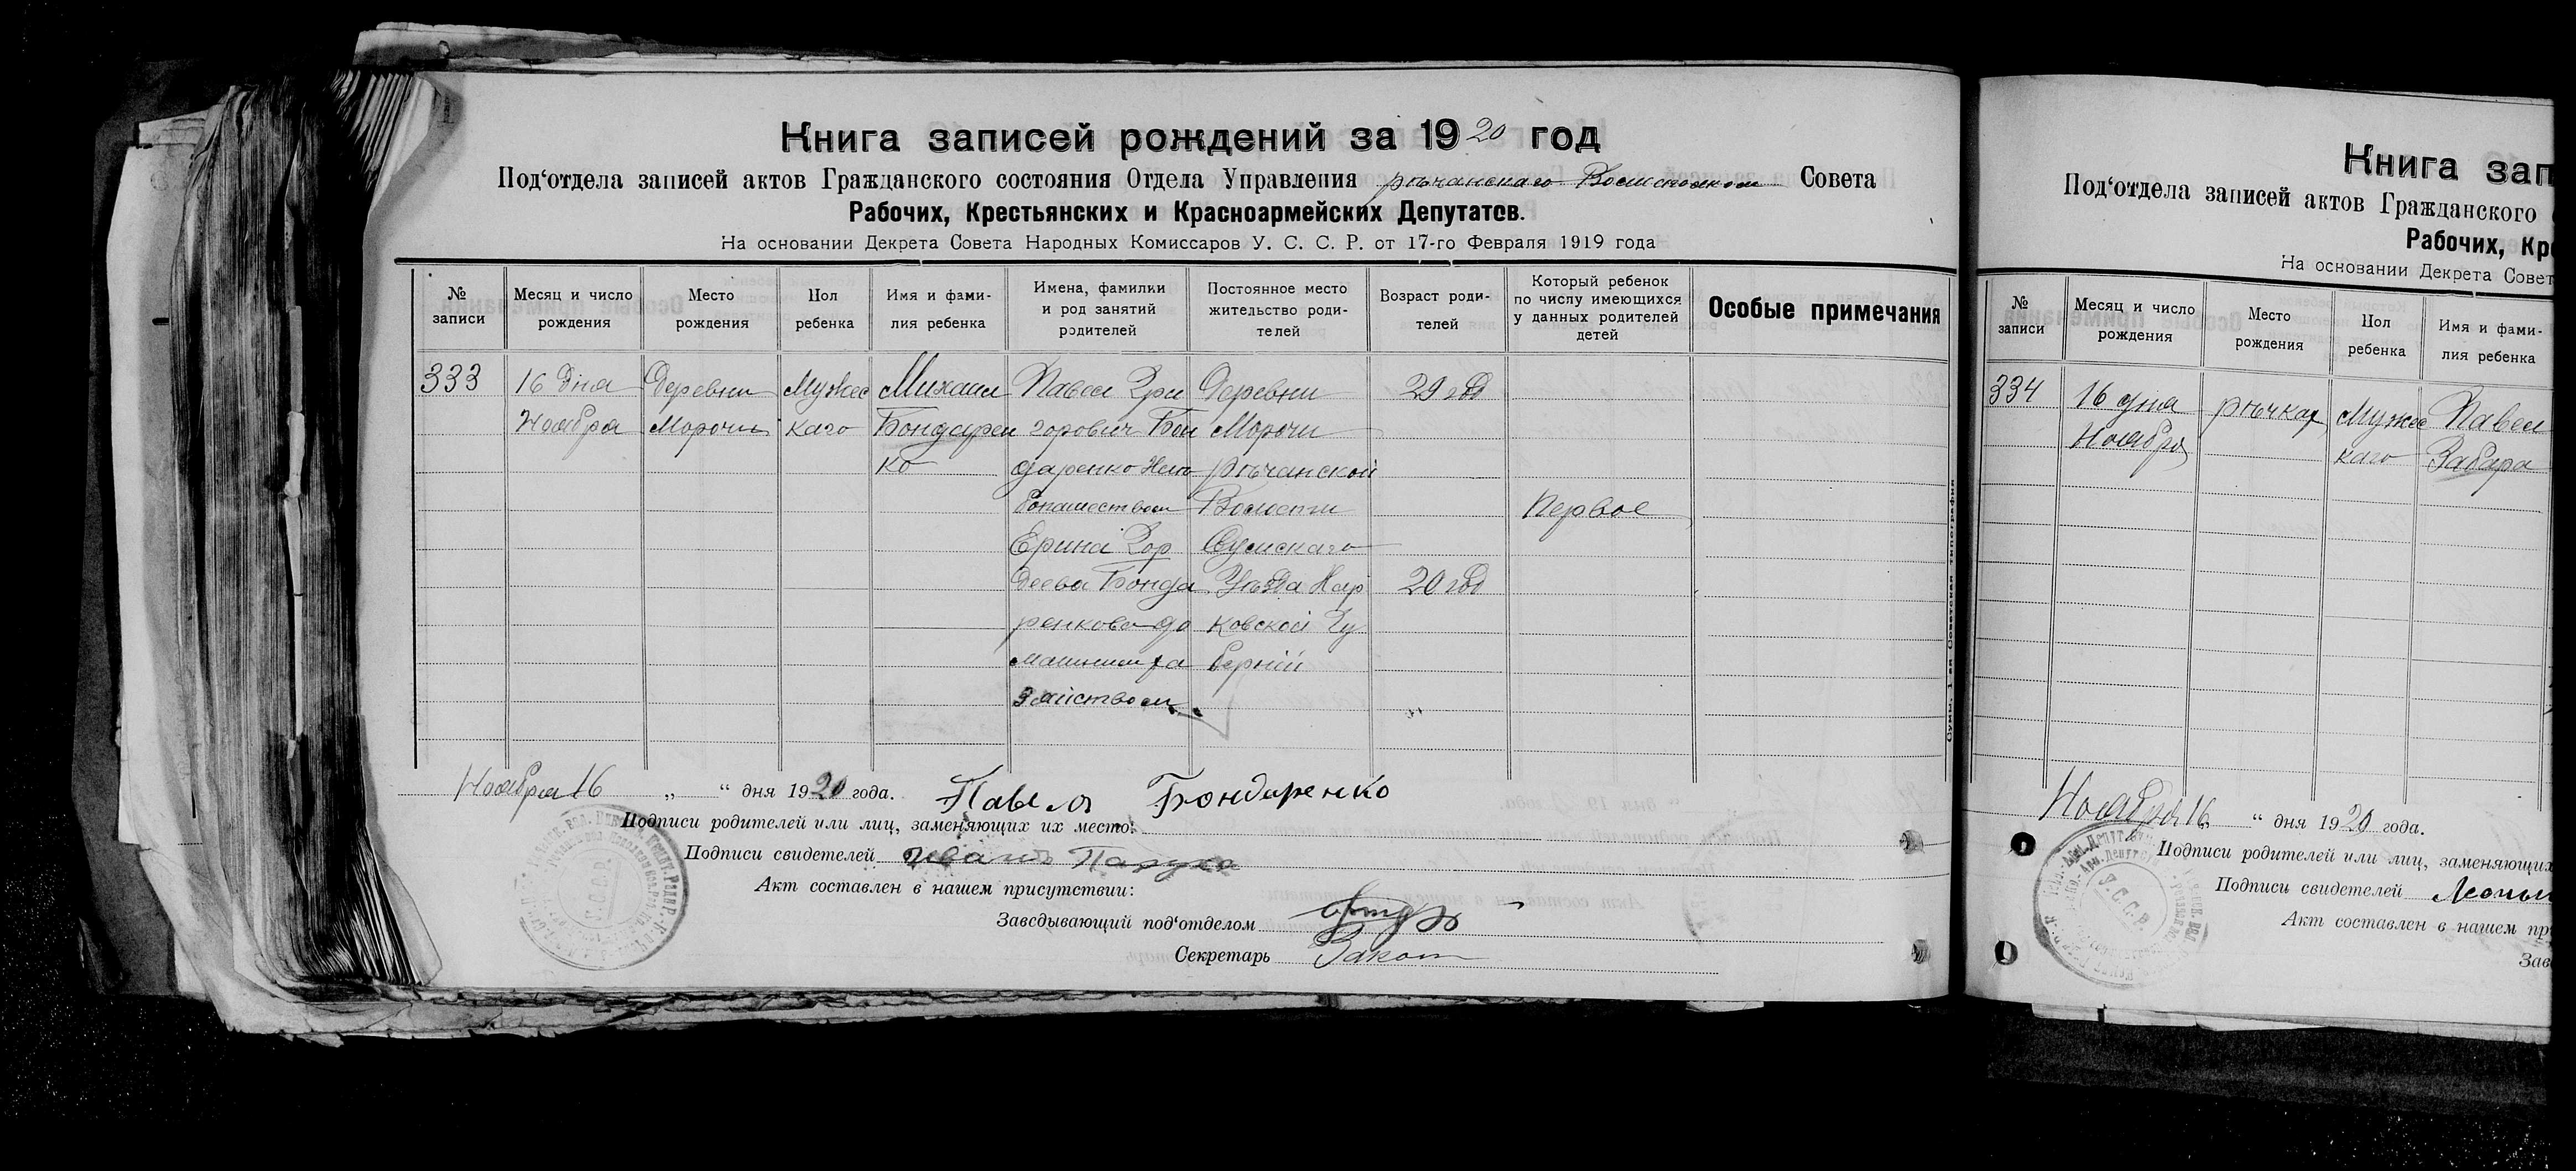 Книга записей рождений за 1920 год
Под‘отдела записей актов Гражданского состояния Отдела Управления рѣчанскаго Волисполком Совета
Рабочих, Крестьянских и Красноармейских Депутатов.
На основании Декрета Совета Народных Комиссаров У. С. С. Р. от 17-го Февраля 1919 года
№ записи
Месяц и число рождения
Место рождения
Пол ребенка
Имя и фами-
лия ребенка
Имена, фамилии
и род занятий
родителей
Постоянное место
жительство роди-
телей
Возраст роди-
телей
Который ребенок
по числу имеющихся
у данных родителей
детей
Особые примечания
333
16 дня
Ноября
Деревни
Морочи
Мужес
каго
Михаил
Бондарен
ко
Павел Гри
горович Бон
даренко
бопашеством
Ерина Гор
деева Бонда
ренкова до
машним ха
зяйством
Деревни
Морочи
рѣчанской
Волости
Сумскаго
Уѣзда Хар
ковской Гу
берній
29 год
20 год
Первое
Сумы, 1-ая Советская типография
Ноября 16 „ “ дня 1920 года.
Павел Бондаренко
Подписи родителей или лиц, заменяющих их место:
Подписи свидетелей Иванъ
Акт составлен в нашем присутствии:
Заведывающий под‘отделом
Секретарь
У.С.С.Р.
Книга зап
Под‘отдела записей актов Гражданского
Рабочих, Кре
На основании Декрета Совет
№ записи
Месяц и число рождения
Место рождения
Пол ребенка
Имя и фами-
лия ребенка
334
16 дня
Ноября
рѣчках
Мужес
каго
Павел
Забара
Ноября 16 „ “ дня 1920 года.
Подписи родителей или лиц, заменяющих
Подписи свидетелей
Акт составлен в нашем пр
Зав
У.С.С.Р.